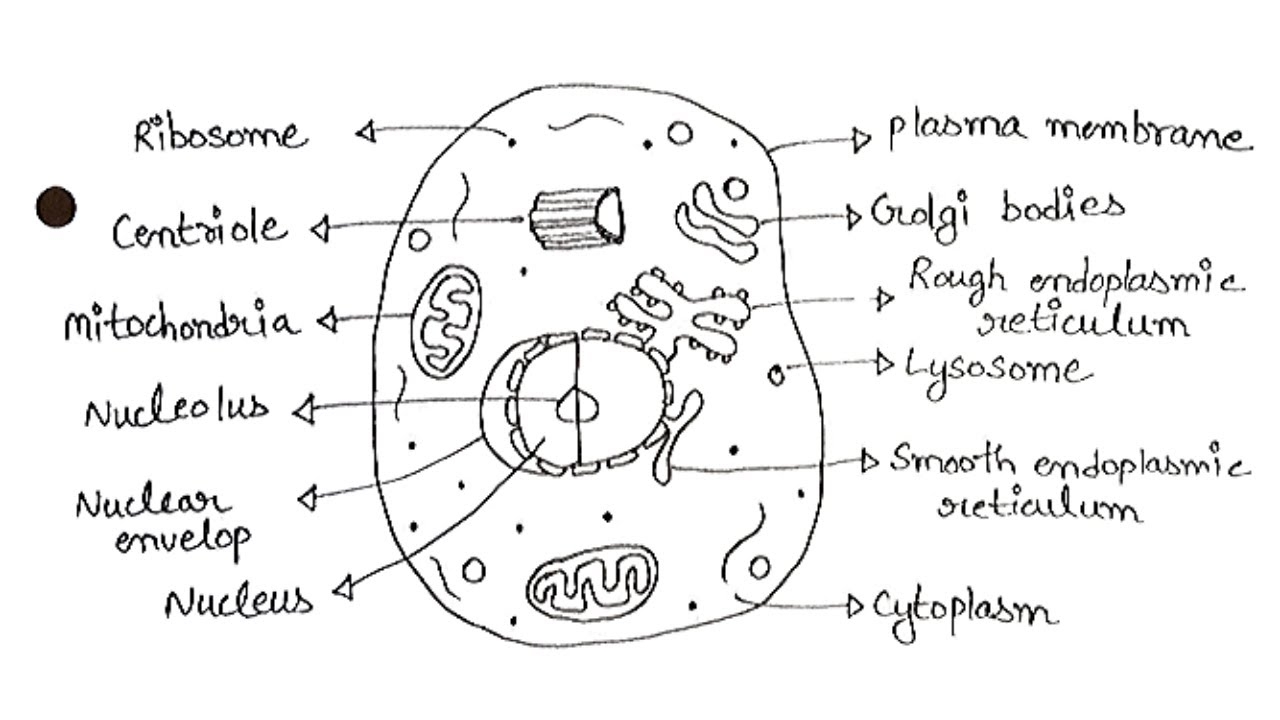 Ribosome
Centriole
mitochondria
Nucleolus
Nuclear
envelop
Nucleus
plasma membrane
Golgi bodies
Rough endoplasmic
reticulum
Lysosome
Smooth endoplasmic
reticulum
Cytoplasm